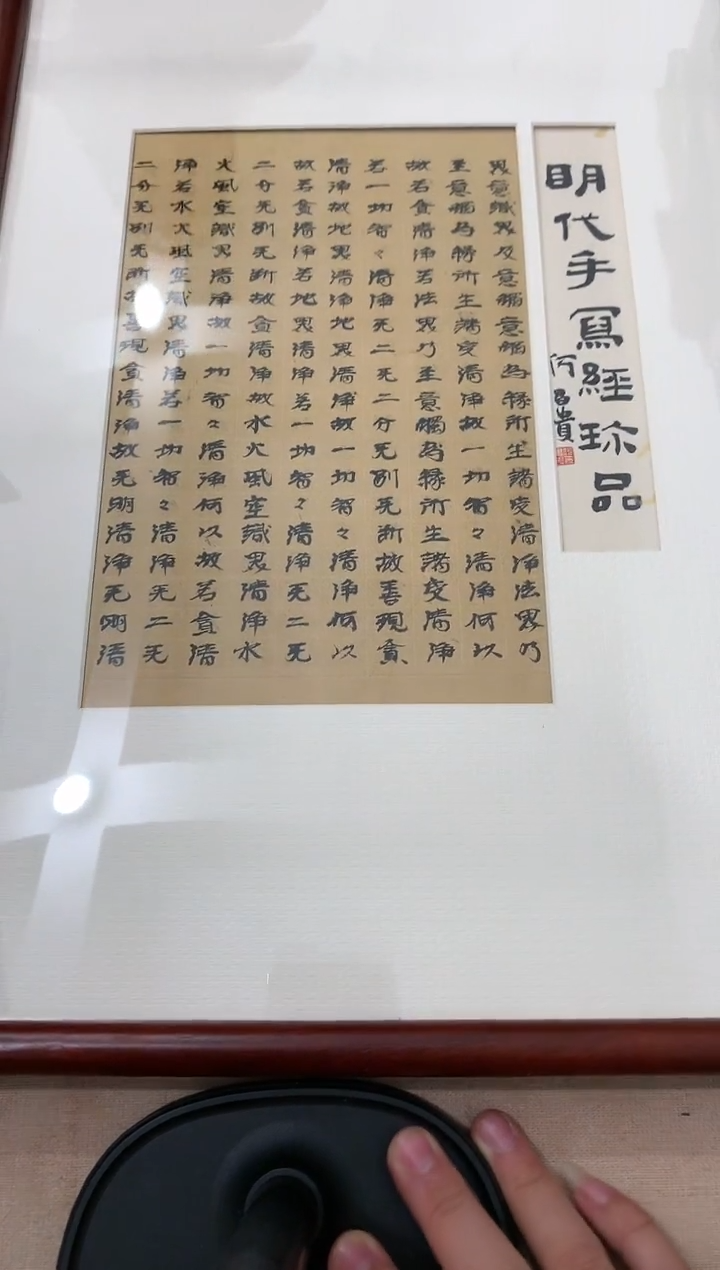 明代手寫經珎品
何
貴
界意識界及意觸意觸為緣所生諸受清淨法界乃
至意觸為緣所生諸受清淨故一切智々清淨何以
故若貪清淨若法界乃至意觸為緣所生諸受清淨
若一切智々清淨无二无二分无別无斷故善現貪
清淨故地界清淨地界清淨故一切智々清淨何以
故若貪清淨若地界清淨若一切智々清淨无二无
二分无別无斷故貪清淨故水火風空識界清淨水
火風空識界清淨故一切智々清淨何以故若貪清
淨若水火風空識界清淨若一切智々清淨无二无
二分无別无斷故善現貪清淨故无明清淨无明清